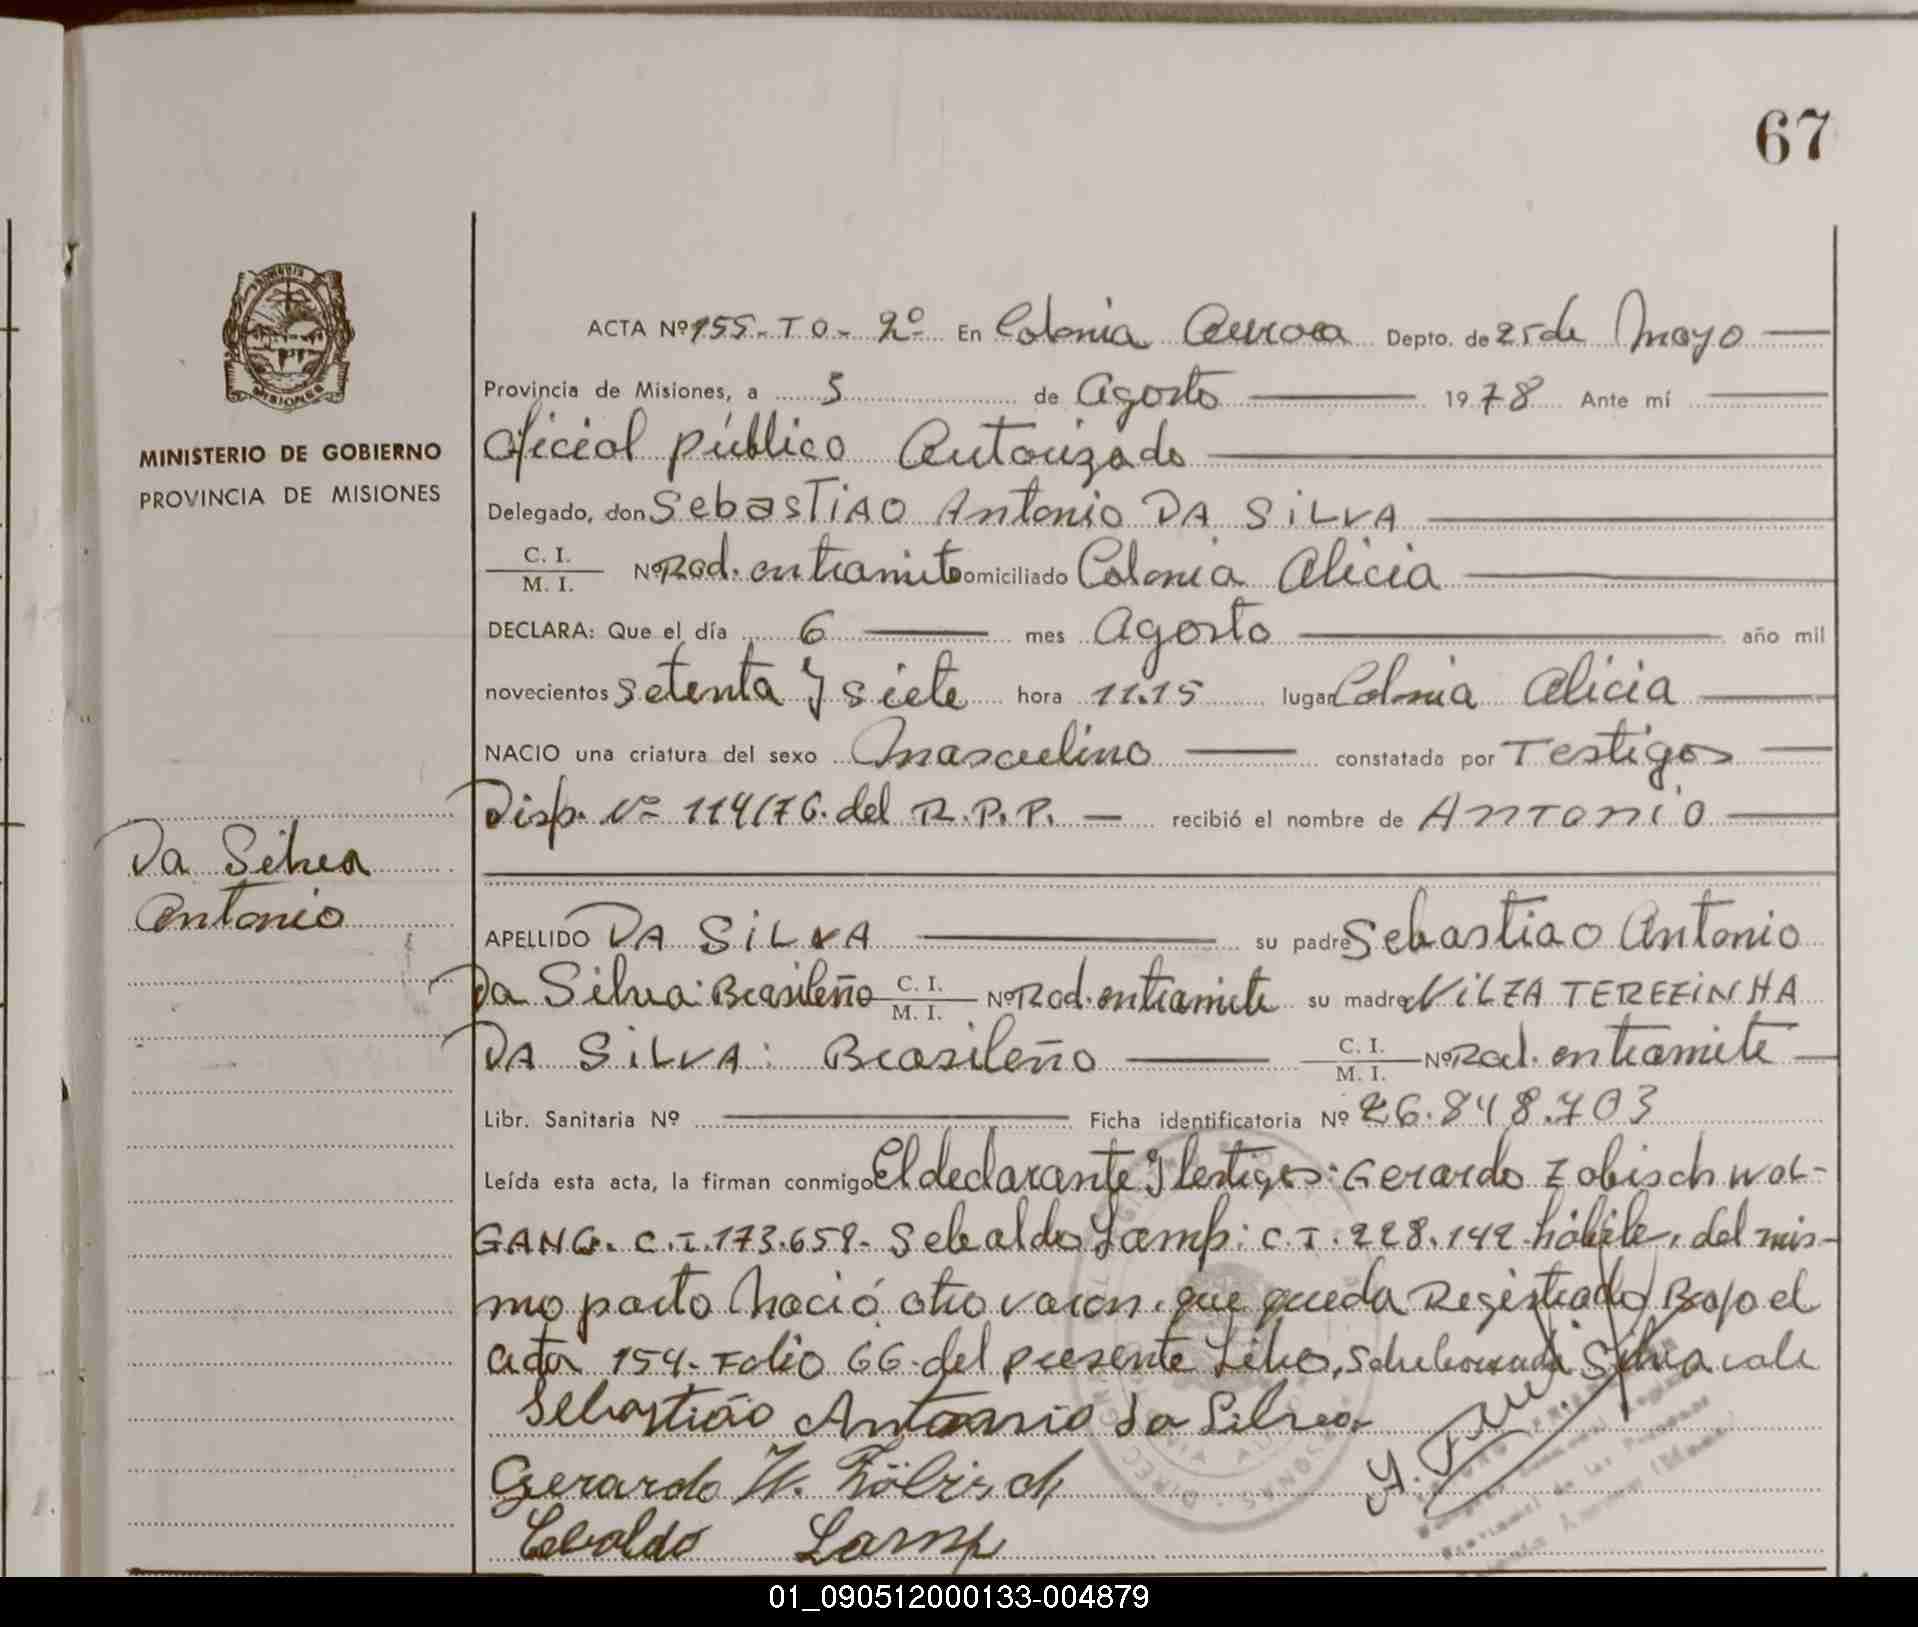 67
MINISTERIO DE GOBIERNO
PROVINCIA DE MISIONES
Da Silva
Antonio
ACTA Nº 155.-T.O.- 2º.- En Colonia Aurora Depto. de 25 de Mayo
Provincia de Misiones, a 5 de Agosto 1978 Ante mí
Oficial público Autorizado
Delegado, don Sebastiao Antonio DA SILVA
C. I.
M. I. Nº Rad. en tramite Domiciliado Colonia Alicia
DECLARA: Que el día 6 mes Agosto año mil
novecientos setenta y siete hora 11.15 lugar Colonia Alicia
NACIO una criatura del sexo Masculino constatada por Testigos
Disp. Nº 114/76. del R.P.P. recibió el nombre de ANTONIO
APELLIDO DA SILVA su padre Sebastiao Antonio
Da Silva: Brasileño C. I. M. I. Nº Rad. en tramite su madre NILZA TEREZINHA
DA SILVA: Brasileño C. I. M. I. Nº Rad. en tramite
Libr. Sanitaria Nº Ficha identificatoria Nº 26.848.703
Leída esta acta, la firman conmigo El declarante y testigos: Gerardo Zobisch WOL-
GANG. C.I. 173.659- Sebaldo Lamp: C.I. 228.142. hábiles, del mis-
mo parto Nació otro varon, que queda Registrado Bajo el
acta 154- Folio 66- del presente Libro, Sobreborrado Silva vale
Sebastião Antonio da Silva
Gerardo W. Zöbisch
Sebaldo Lamp
01_090512000133-004879